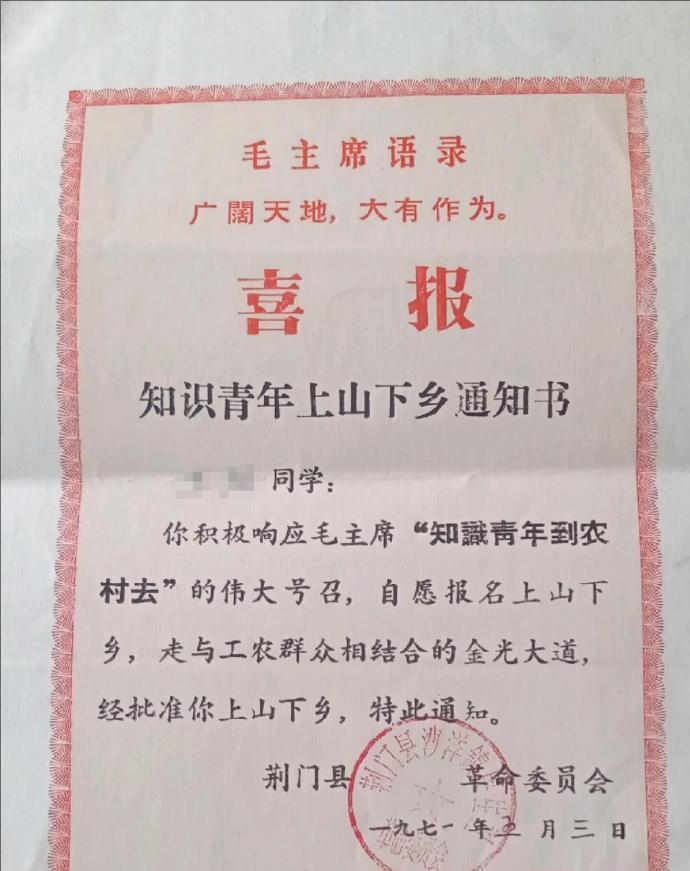 毛主席语录
广闊天地，大有作为。
喜报
知识青年上山下乡通知书
同学：
你积极响应毛主席“知識青年到农
村去”的伟大号召，自愿报名上山下
乡，走与工农群众相结合的金光大道，
经批准你上山下乡，特此通知。
荆门县 革命委员会
荆门县沙洋镇
一九七一年五月三日